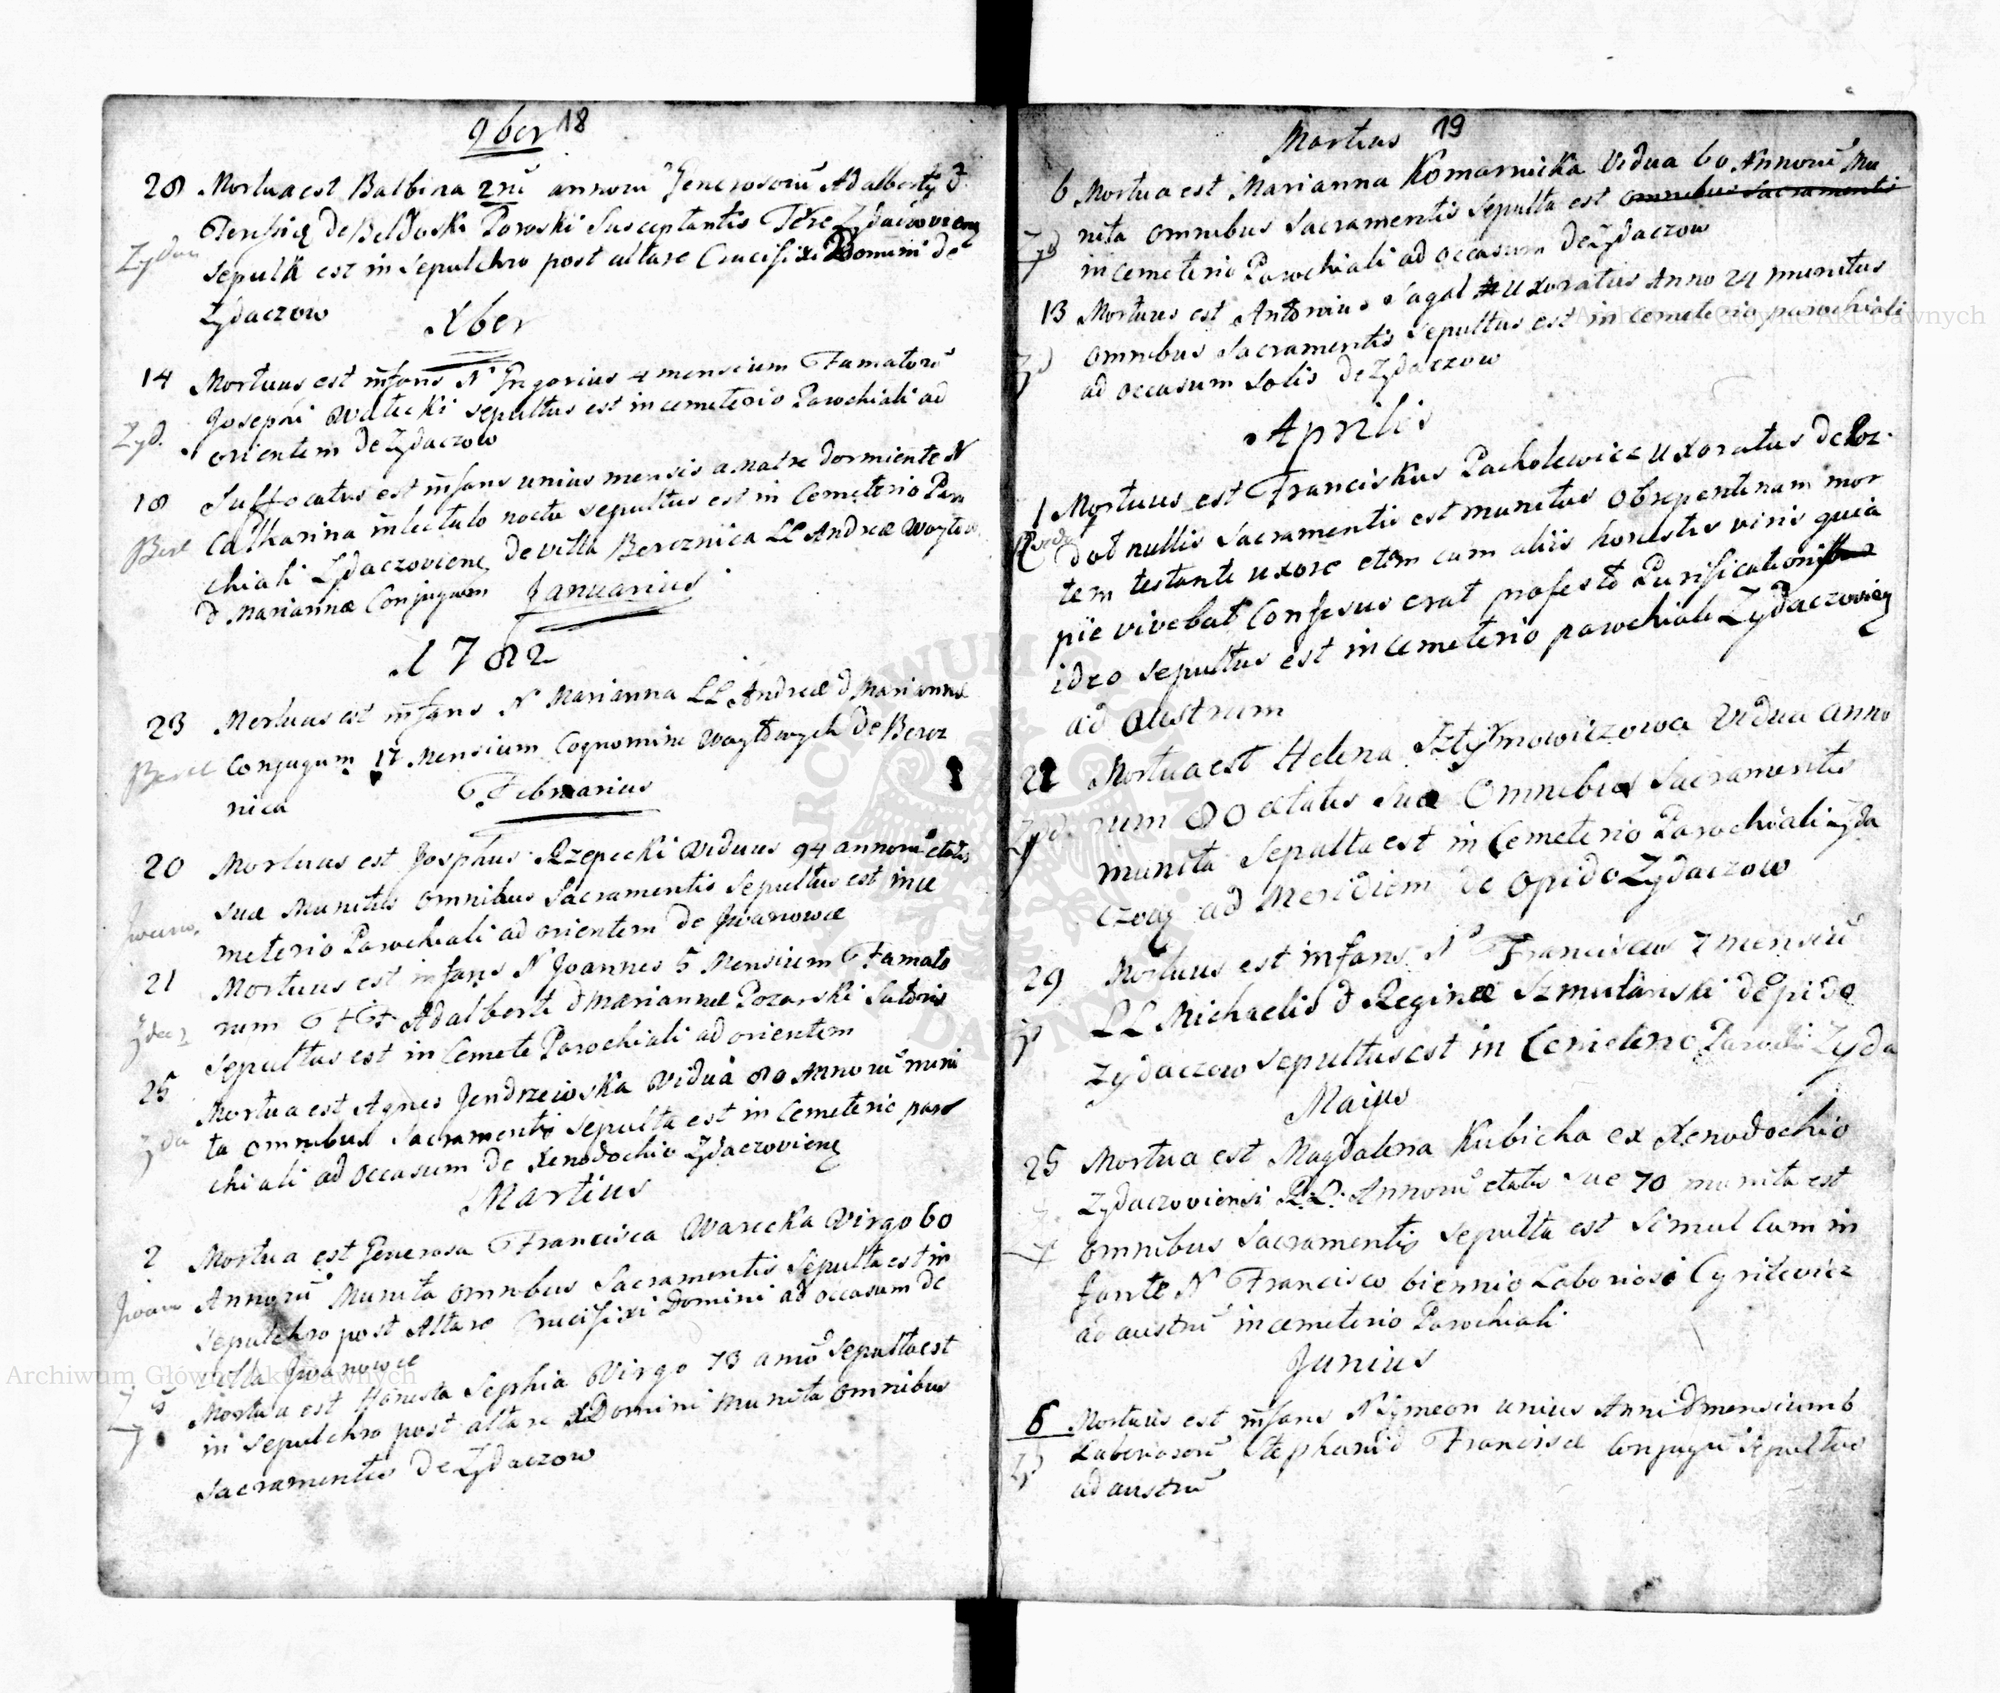 9ber 18
28 Mortua est Balbina 2rũ annorũ Generosorũ Adalberti &
de Beldoski Poroski Susceptantis Zydaczoviens
Zydacz
Sepulta est in Sepulchro post altare Crucifixi Domini de
Zydaczow
Xber
14 Mortuus est infans N Grigorius 4 mensium Famatorũ
Josephi sepultus est in cemeterio Parochiali ad
Zyd.
orientem de Zydaczow
18 Suffocatus est infans unius mensis a Matre dormiente N
Catharina in lectulo noctu sepultus est in Cemeterio Paro
Bere
chiali Zydaczoviens de villa Bereznica LL Andreæ Woytow
& Mariannæ Conjugum
Januarius
1782
23 Mortuus est infans N Marianna LL Andreæ & Mariannæ
Conjugum 17 Mensium Cognomine Woytowych de Berez
Berel
nica
Februarius
20 Mortuus est Josphus Rzepecki Viduus 94 annorũ etatis
suæ Munitus omnibus Sacramentis Sepultus est in ce
meterio Parochiali ad orientem de Jwanowce
21 Mortuus est infans N Joannes 5 Mensium Famato
rum Adalberti & Mariannæ Pozarski Sutoris
Sepultus est in Cemete Parochiali ad orientem
25 Mortua est Agnes Jendrzeioska Vidua 80 Annorũ muni
ta omnibus Sacramentis Sepulta est in Cemeterio paro
Zda
chiali ad occasum de Xenodochio Zydaczoviens
Martius
2 Mortua est Generosa Francisca Warecka Virgo 60
Annorũ Munita omnibus Sacramentis Sepulta est in
Jwan
Sepulchro post Altare Crucifixi Domini ad occasum de
villa Jwanowce
5 Mortua est Honesta Sophia Virgo 73 anno Sepulta est
in Sepulchro post altare Domini Munita omnibus
Sacramentis de Zydaczow
Martius 19
6 Mortua est Marianna Komarnicka Vidua 60 Annorũ Mu
nita omnibus Sacramentis Sepulta est omnibus Sacramentis
Zyd
in Cemeterio Parochiali ad occasum de Zydaczow
13 Mortuus est Antonius Sagal uxoratus Anno 24 munitus
omnibus Sacramentis Sepultus est in Cemeterio parochiali
Zyd
ad occasum Solis de Zydaczow
Aprilis
1 Mortuus est Franciskus Pacholewicz uxoratus de Roz-
dol nullis Sacramentis est munitus ob repentinam mor
tem testante uxore etem cum aliis honestis viris quia
pie vivebat Confesus erat profesto Purificationis
ideo Sepultus est in Cemeterio parochiali Zydaczoviens
ad Austrum
22 Mortua est Helena Sztyrmowiczowa Vidua anno
rum 80 ætatis suæ Omnibus Sacramentis
Zyd.
munita Sepulta est in Cemeterio Parochiali Zyda
czov ad Meridiem de Opido Zydaczow
29 Mortuus est infans N Franciscus 7 mensiũ
LL Michaelis & Reginæ Szmulanski de pido
Zyd
Zydaczow sepultus est in Cemeterio Parochi Zyda
Maius
25 Mortua est Magdalena Kubicka ex Xenodochio
Zydaczoviensi R.L. Annorũ etatis suæ 70 munita est
omnibus Sacramentis sepulta est Simul Cum in
fante N Francisco biennio Laboriosi Cyrilewicz
ad austrũ in Cemeterio Parochiali
Junius
6 Mortuus est infans N Symeon unius Anni & mensium 6
Laboriosorũ Stephani & Franciscæ Conjugũ Sepultus
Zyd
ad austrũ
Archiwum Główne Akt Dawnych
Archiwum Główne Akt Dawnych